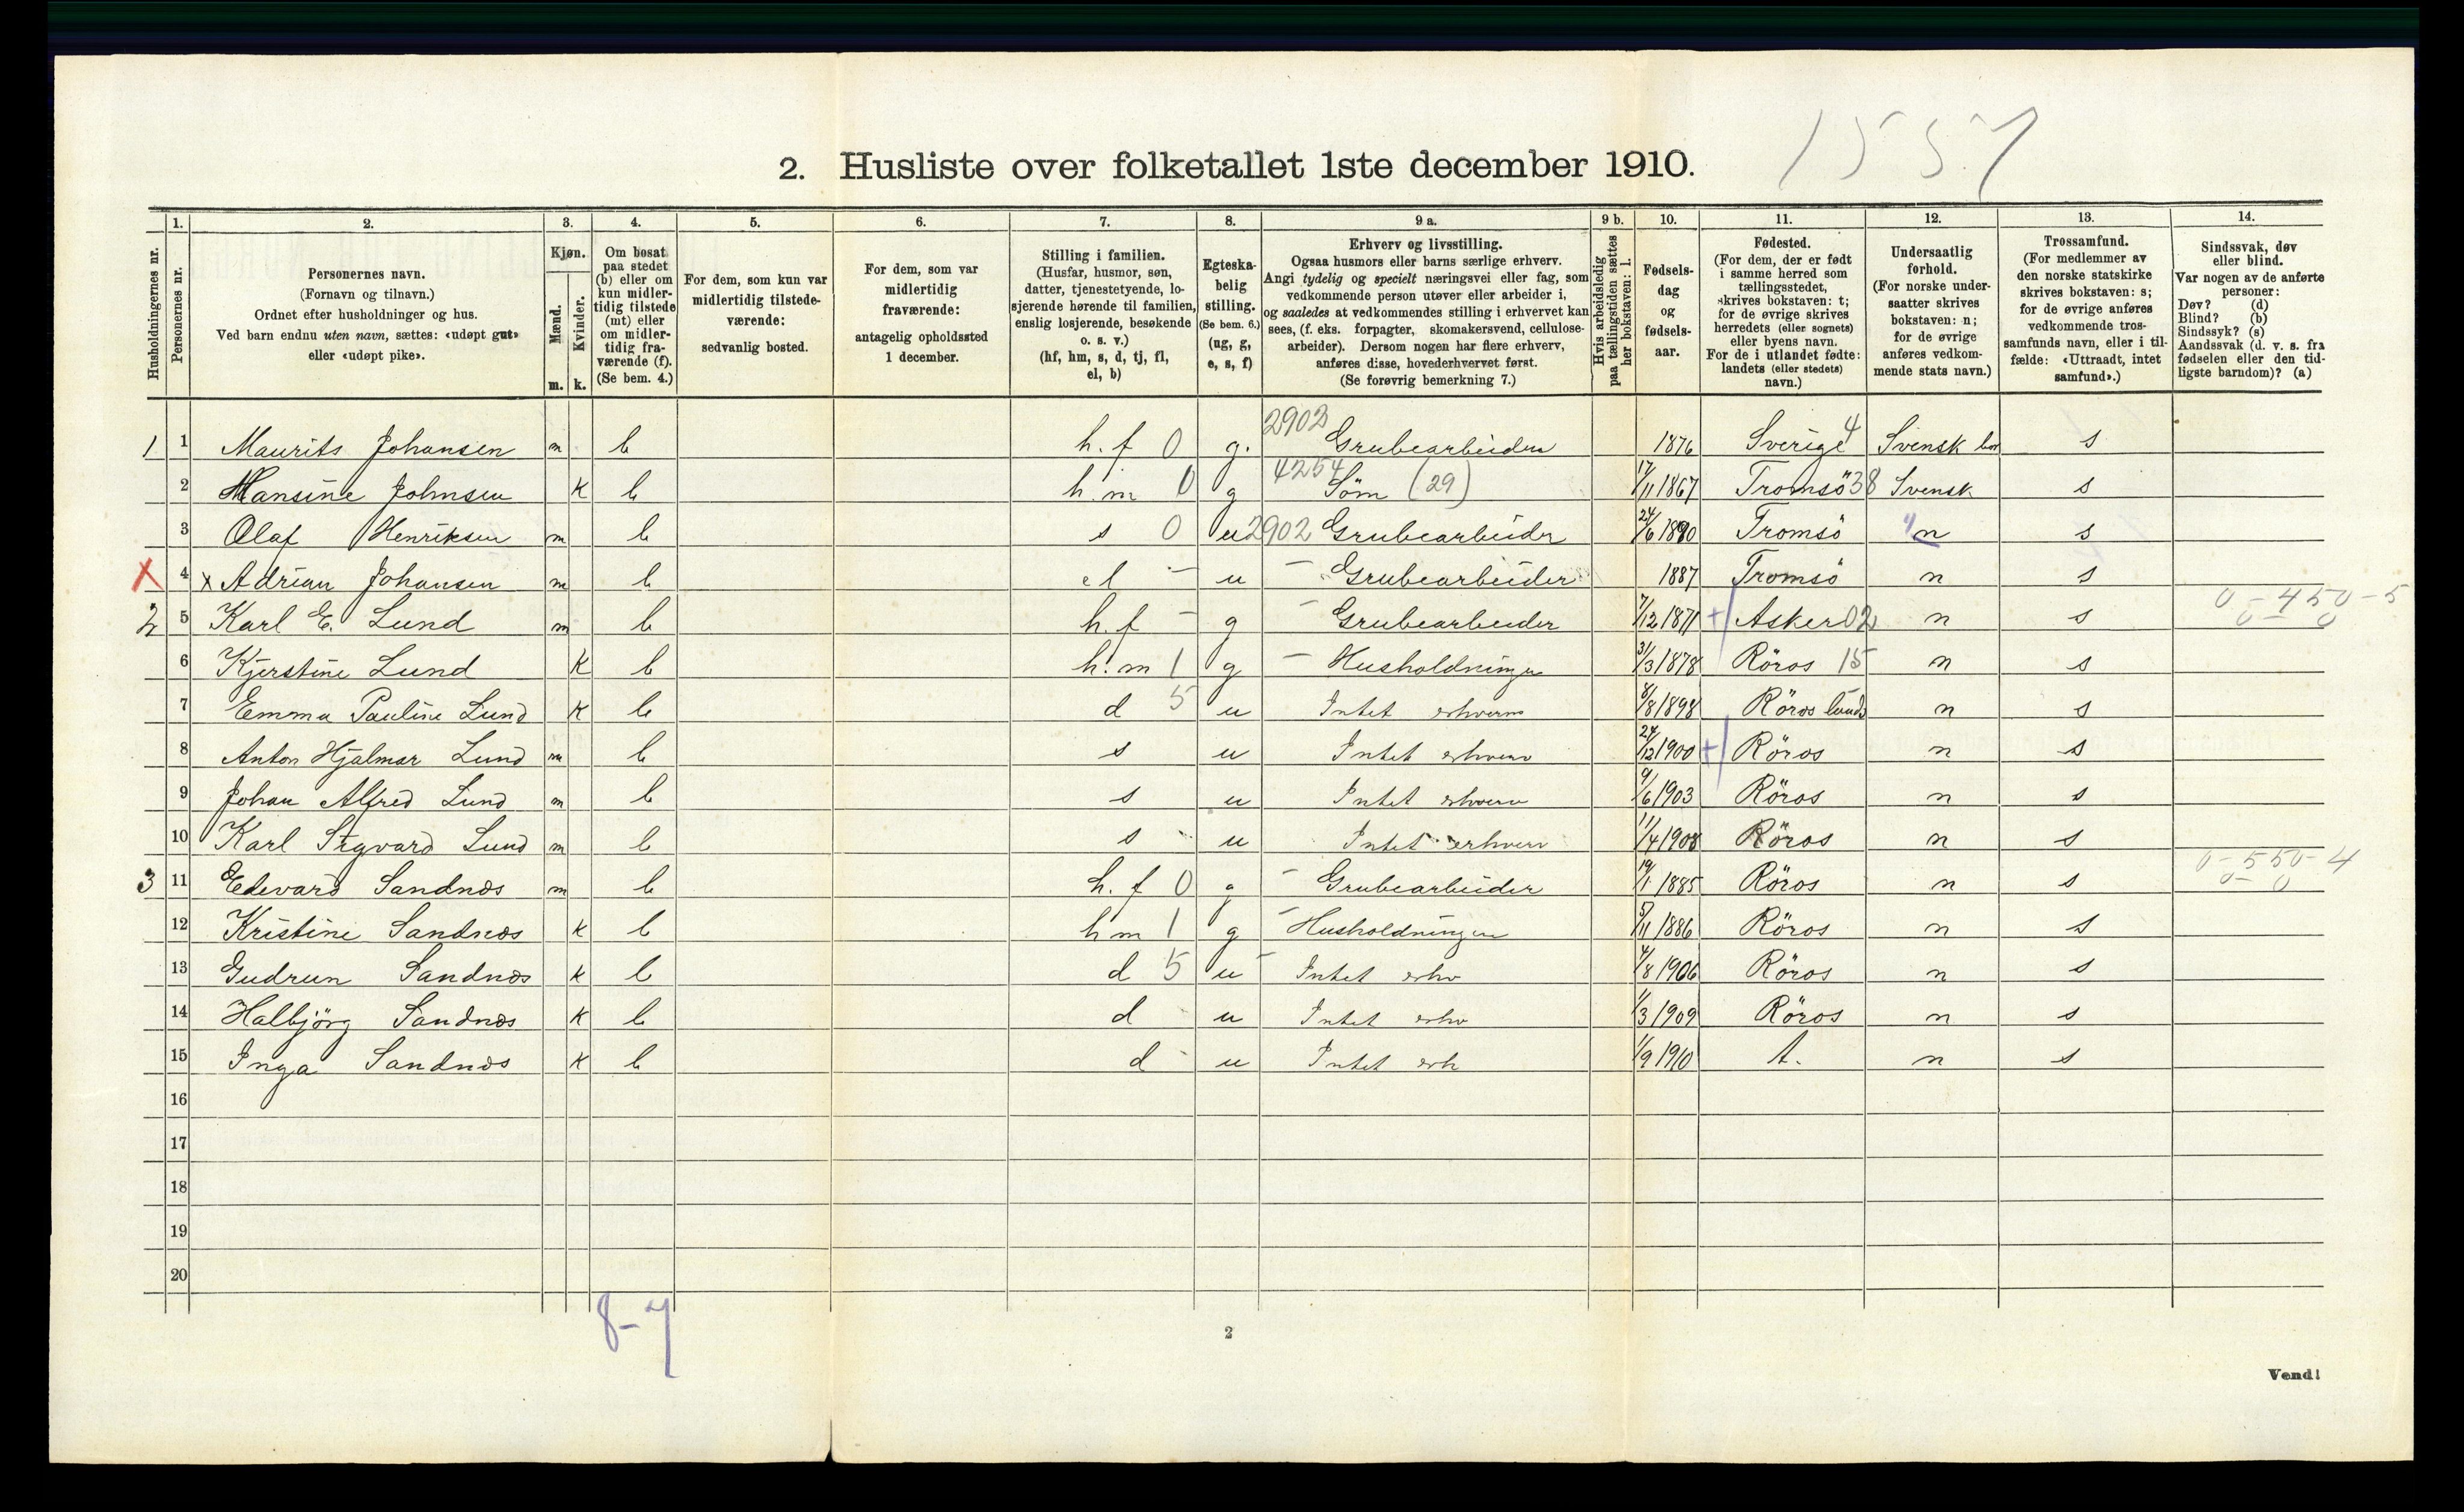 1557
2. Husliste over folketallet 1ste december 1910.
Husholdningernes nr.
1. Personernes nr.
2. Personernes navn. (Fornavn og tilnavn.) Ordnet efter husholdninger og hus. Ved barn endnu uten navn, sættes: «udøpt gut» eller «udøpt pike».
3. Kjøn. Mænd. m. Kvinder. k.
4. Om bosat paa stedet (b) eller om kun midlertidig tilstede (mt) eller om midlertidig fraværende (f). (Se bem. 4.)
5. For dem, som kun var midlertidig tilstedeværende: sedvanlig bosted.
6. For dem, som var midlertidig fraværende: antagelig opholdssted 1 december.
7. Stilling i familien. (Husfar, husmor, søn, datter, tjenestetyende, losjerende hørende til familien, enslig losjerende, besøkende o. s. v.) (hf, hm, s, d, tj, fl, el, b)
8. Egteskabelig stilling. (Se bem. 6.) (ug, g, e, s, f)
9 a. Erhverv og livsstilling. Ogsaa husmors eller barns særlige erhverv. Angi tydelig og specielt næringsvei eller fag, som vedkommende person utøver eller arbeider i, og saaledes at vedkommendes stilling i erhvervet kan sees, (f. eks. forpagter, skomakersvend, cellulosearbeider). Dersom nogen har flere erhverv, anføres disse, hovederhvervet først. (Se forøvrig bemerkning 7.)
9 b. Hvis arbeidsledig paa tællingstiden sættes her bokstaven: l.
10. Fødselsdag og fødselsaar.
11. Fødested. (For dem, der er født i samme herred som tællingsstedet, skrives bokstaven: t; for de øvrige skrives herredets (eller sognets) eller byens navn. For de i utlandet fødte: landets (eller stedets) navn.)
12. Undersaatlig forhold. (For norske undersaatter skrives bokstaven: n; for de øvrige anføres vedkommende stats navn.)
13. Trossamfund. (For medlemmer av den norske statskirke skrives bokstaven: s; for de øvrige anføres vedkommende trossamfunds navn, eller i tilfælde: «Uttraadt, intet samfund».)
14. Sindssvak, døv eller blind. Var nogen av de anførte personer: Døv? (d) Blind? (b) Sindssyk? (s) Aandssvak (d. v. s. fra fødselen eller den tidligste barndom)? (a)
1 1 Maurits Johansen m b h.f 0 g. 2902 Grubearbeider 1876 Sverige 4 Svensk s
2 Hansine Johnsen K b h.m 0 g 4254 Söm (29) 17/11 1867 Tromsö 38 Svensk s
3 Olaf Henriksen m b s 0 u 2902 Grubearbeider 24/6 1890 Tromsö n s
X 4 x Adrian Johansen m b el - u - Grubearbeider 1887 Tromsö n s
2 5 Karl E. Lund m b h.f - g - Grubearbeider 7/12 1871 + Asker 02 n s 0-450-5
6 Kjerstine Lund K b h.m 1 g - Husholdningen 31/3 1878 Röros 15 n s
7 Emma Pauline Lund K b d 5 u Intet erhverv 8/8 1898 Röros n s
8 Anton Hjalmar Lund m b s u Intet erhverv 24/12 1900 + Röros n s
9 Johan Alfred Lund m b s u Intet erhverv 9/6 1903 Röros n s
10 Karl Sigvard Lund m b s u Intet erhverv 11/4 1908 Röros n s
3 11 Edevard Sandnæs m b h.f 0 g - Grubearbeider 19/1 1885 Röros n s 0-550-4
12 Kristine Sandnæs K b hm 1 g - Husholdningen 5/11 1886 Röros n s
13 Gudrun Sandnæs K b d 5 u - Intet erhv 4/8 1906 Röros n s
14 Halbjörg Sandnæs K b d u Intet erhv 1/3 1909 Röros n s
15 Inga Sandnæs K b d u Intet erh 1/9 1910 t. n s
16
17
18
19
20
8-7
2
Vend!